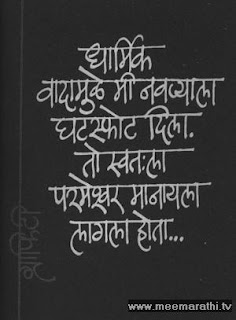 धार्मिक
वादामुळे मी नवज्याला
घटस्फोट दिला.
तो स्वतःला
परमेश्वर मानायला
लागला होता...
ग्राफिटी
www.meemarathi.tv